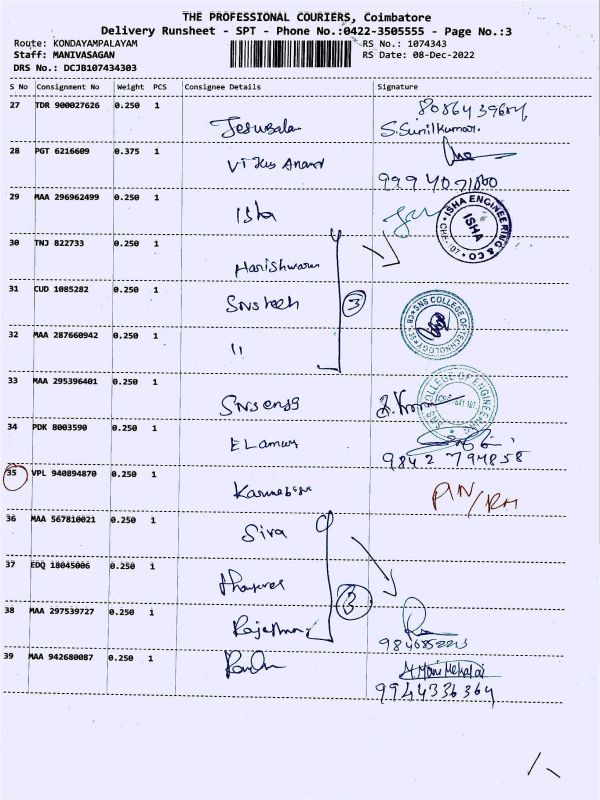 THE PROFESSIONAL COURIERS, Coimbatore
Delivery Runsheet - SPT - Phone No.:0422-3505555 - Page No.:3
Route: KONDAYAMPALAYAM RS No.: 1074343
Staff: MANIVASAGAN RS Date: 08-Dec-2022
DRS No.: DCJB107434303
S No Consignment No Weight PCS Consignee Details Signature
27 TDR 900027626 0.250 1 Jesubala S.Sunilkumar.
28 PGT 6216609 0.375 1 Anand
29 MAA 296962499 0.250 1 Isha ISHA ENGINEERING & CO ISHA
30 TNJ 822733 0.250 1 Harishwaran
31 CUD 1085282 0.250 1 Sns tech 3 SNS COLLEGE OF TECHNOLOGY
32 MAA 287660942 0.250 1 11
33 MAA 295396401 0.250 1 Sns engg COLLEGE OF ENGINEERING
34 PDK 8003590 0.250 1 9842 794858
35 VPL 940894870 0.250 1
36 MAA 567810021 0.250 1 Siva
37 EDQ 18045006 0.250 1 3
38 MAA 297539727 0.250 1
39 MAA 942680087 0.250 1
9944336364